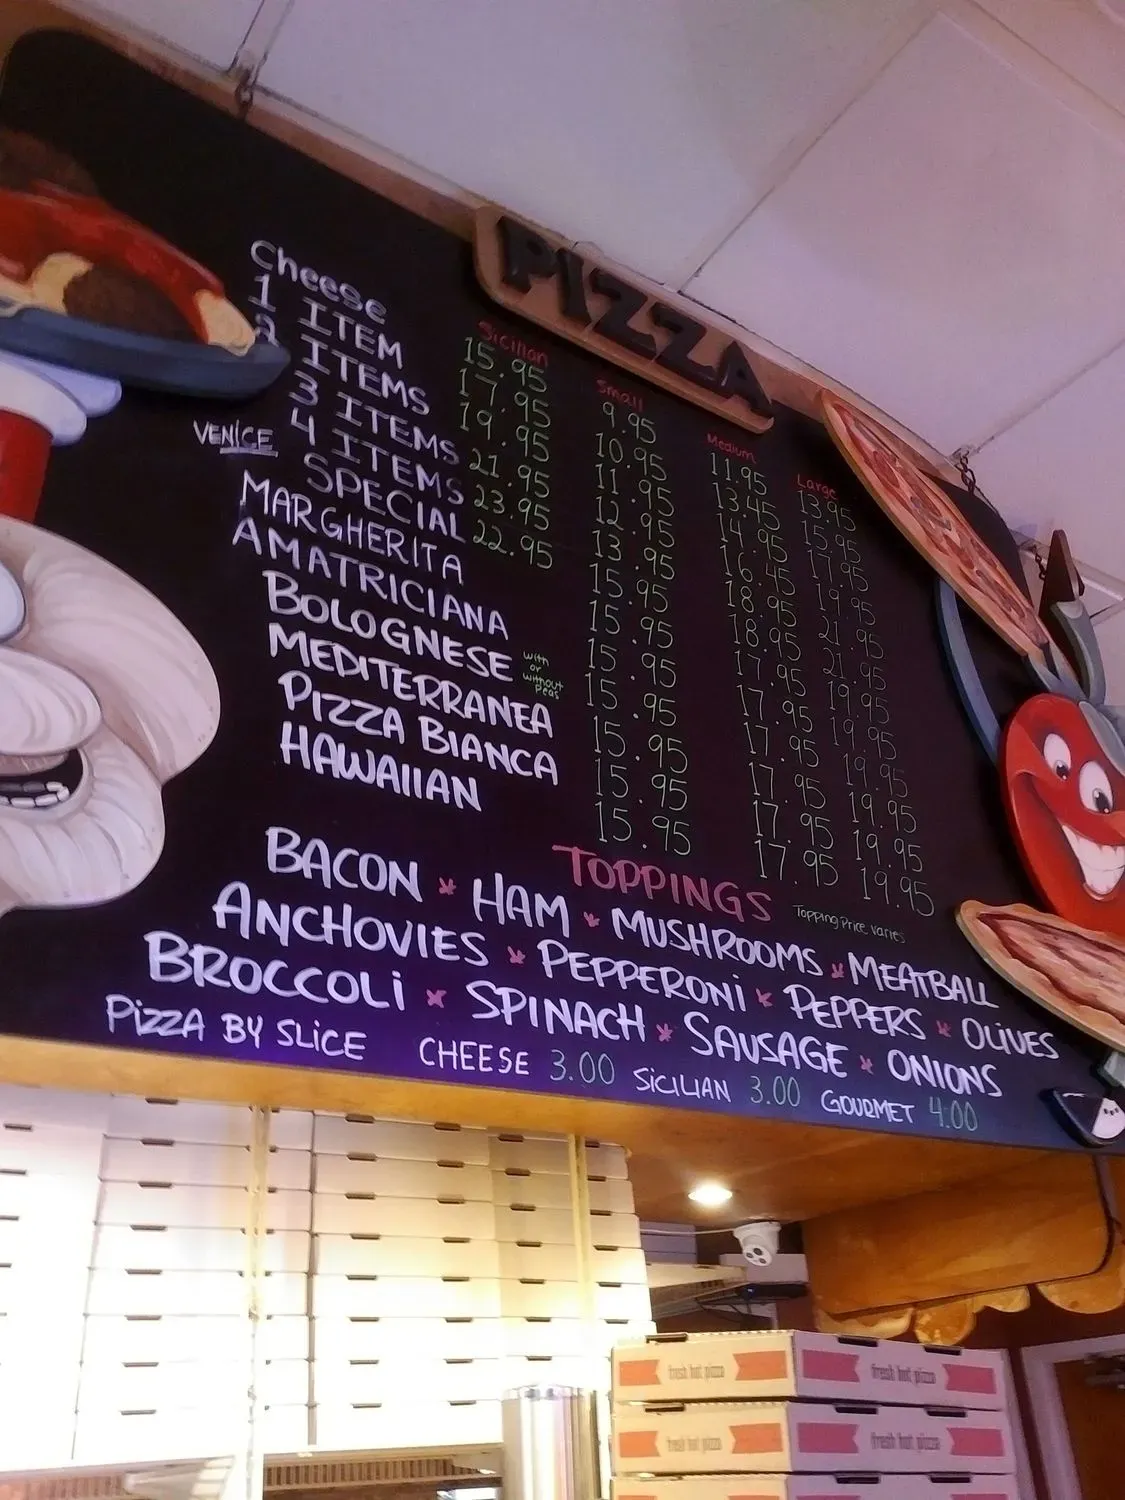 PIZZA
Sicilian Small Medium Large
Cheese 15.95 9.95 11.95 13.95
1 ITEM 17.95 10.95 13.45 15.95
2 ITEMS 19.95 11.95 14.95 17.95
3 ITEMS 21.95 12.95 16.45 19.95
4 ITEMS 23.95 13.95 18.95 21.95
VENICE SPECIAL 22.95 15.95 18.95 21.95
MARGHERITA 15.95 17.95 19.95
AMATRICIANA 15.95 17.95 19.95
BOLOGNESE with or without peas 15.95 17.95 19.95
MEDITERRANEA 15.95 17.95 19.95
PIZZA BIANCA 15.95 17.95 19.95
HAWAIIAN 15.95 17.95 19.95
TOPPINGS Topping Price varies
BACON * HAM * MUSHROOMS * MEATBALL
ANCHOVIES * PEPPERONI * PEPPERS * OLIVES
BROCCOLI * SPINACH * SAUSAGE * ONIONS
PIZZA BY SLICE CHEESE 3.00 SICILIAN 3.00 GOURMET 4.00
fresh hot pizza fresh hot pizza
fresh hot pizza fresh hot pizza